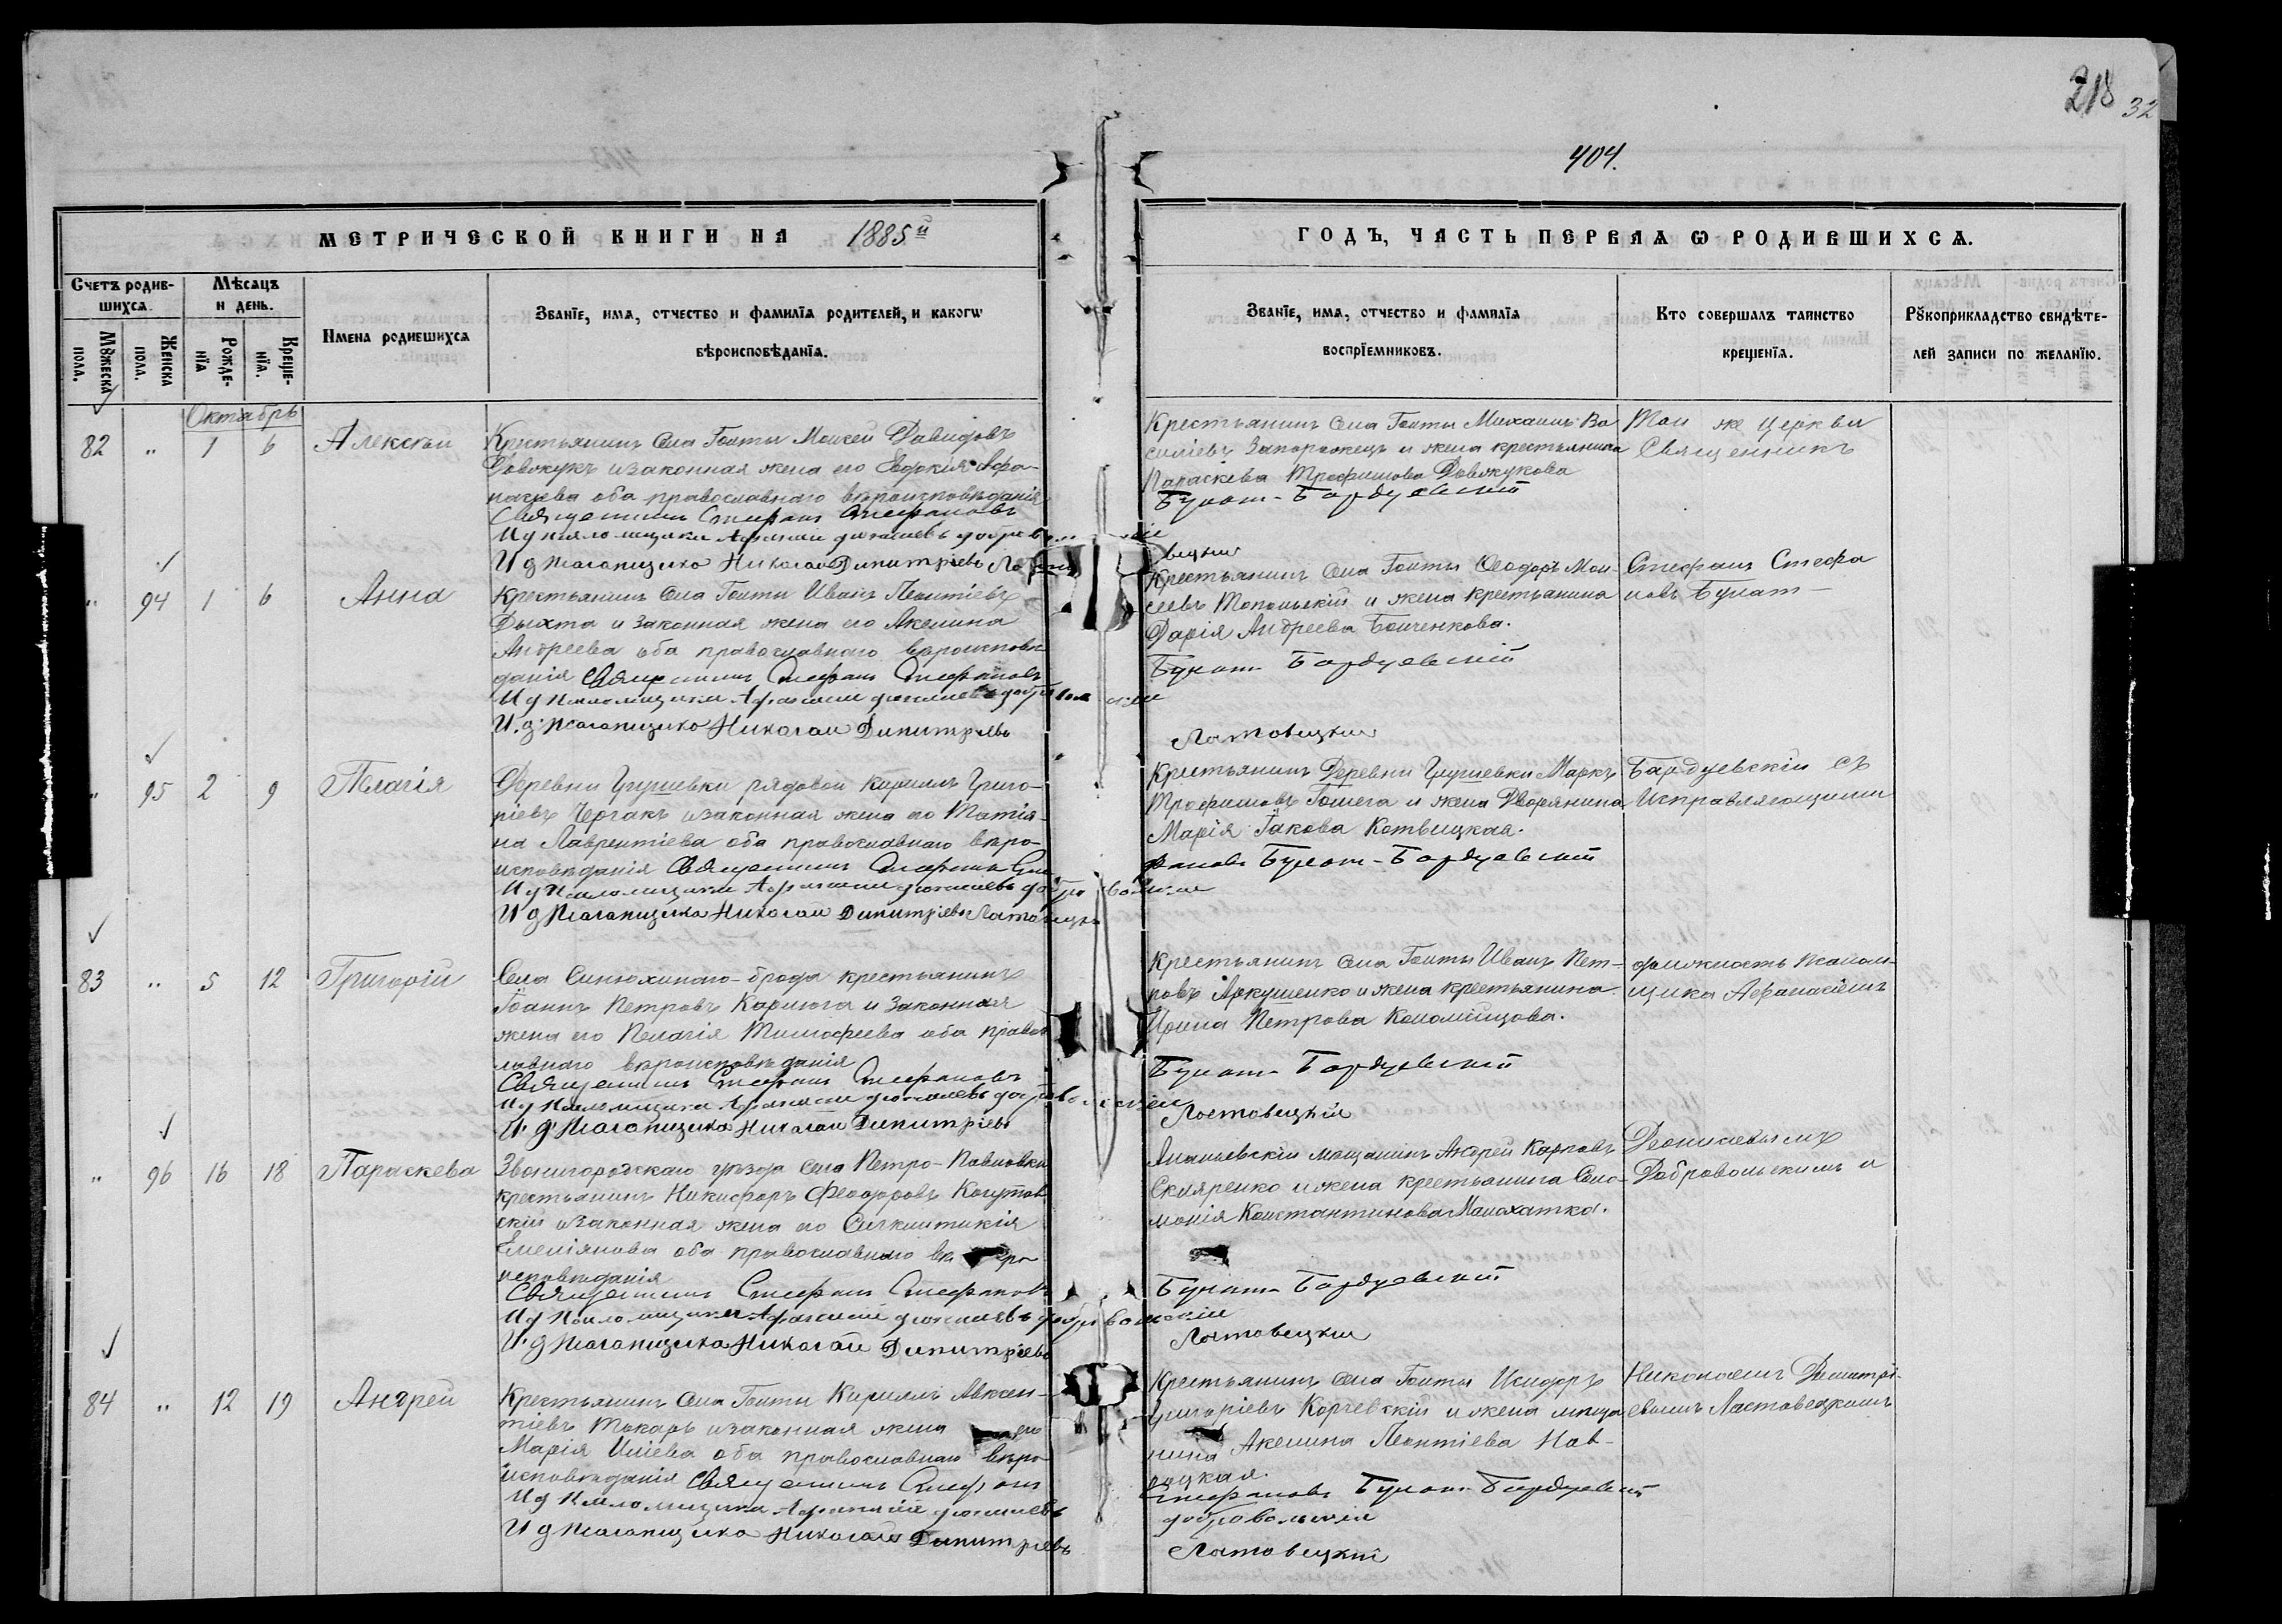 218 32
404.
МЕТРИЧЕСКОЙ КНИГИ НА 1885й
ГОДЪ, ЧАСТЬ ПЕРВАѦ Ѡ РОДИВШИХСѦ.
Счетъ родив-
шихсѧ.
Мѣсяцъ
и день.
Мꙋжеска
пола.
Женска
пола.
Рожде-
нїѧ
Креще-
нїѧ.
Имена родившихсѧ
Званїе, имѧ, отчество и фамилїѧ родителей, и какогѡ
вѣроисповѣданїѧ.
Званїе, имѧ, отчество и фамилїѧ
воспрїемниковъ.
Кто совершалъ таинство
крещенїѧ.
Рꙋкоприкладство свидѣте-
лей записи по желанїю.
Октябрь
82 " 1 6 Алексѣй
Крестьянинъ села Голты Моисей Давидовъ
Довжукъ и законная жена его Евдокія Афа-
насіева оба православнаго вѣроисповѣданія
Священникъ Стефанъ Стефановъ
И д псаломщика Афанасій Діонисіевъ Добровольскій
И д псаломщика Николай Димитріевъ
Крестьянинъ села Голты Михаилъ Ва
силіевъ Запорожецъ и жена крестьянина
Параскева Трофимова Довжукова
Булат-Бардуевскій
Той же церкви
Священникъ
" 94 1 6 Анна
Крестьянинъ села Голты Иванъ Леонтіевъ
Дыхта и законная жена его Акелина
Андреева оба православнаго вѣроисповѣ
данія Священникъ Стефанъ Стефановъ
И д псаломщика Афанасій Діонисіевъ Добровольскій
И. д. псаломщика Николай Димитріевъ
Крестьянинъ села Голты Феодоръ Мои-
сеевъ Топольскій и жена крестьянина
Дарія Андреева Бойченкова.
Булат-Бардуевскій
Ластовецкій
Стефанъ Стефа
новъ Булат-
" 95 2 9 Пелагія
Деревни Грушевки рядовой Кириллъ Григо-
ріевъ Чергакъ и законная жена его Татія-
на Лаврентіева оба православнаго вѣро-
исповѣданія Священникъ Стефанъ Сте
И д псаломщика Афанасій Діонисіевъ Добровольскій
И д псаломщика Николай Димитріевъ Ластовецкій
Крестьянинъ Деревни Грушевки Маркъ
Трофимовъ Гошега и жена Дворянина
Марія Іакова Котвицкая.
фановъ Булат-Бардуевскій
Бардуевскій съ
Исправляющими
83 " 5 12 Григорій
Села Синюхиного-брода крестьянинъ
Іоаннъ Петровъ Карнога и законная
жена его Пелагія Тимофеева оба правос
лавнаго вѣроисповѣданія
Священникъ Стефанъ Стефановъ
И д псаломщика Афанасій Діонисіевъ Добровольскій
И. д. псаломщика Николай Димитріевъ
Крестьянинъ села Голты Иванъ Пет-
ровъ Аркушенко и жена крестьянина
Ирина Петрова Коломійцова.
Булат-Бардуевскій
Ластовецкій
должность псалом-
щика Афанасіемъ
" 96 16 18 Параскева
Звенигородскаго уѣзда села Петро-Павловки
крестьянинъ Никифоръ Феодоровъ
скій и законная жена его Синклитикія
Емеліянова оба православнаго вѣро
исповѣданія
Священникъ Стефанъ Стефановъ
И д псаломщика Афанасій Діонисіевъ Добровольскій
И. д псаломщика Николай Димитріевъ
Ананьевскій мѣщанинъ Андрей Карповъ
Скляренко и жена крестьянина Соло-
монія Константинова Малохатка.
Булат-Бардуевскій
Ластовецкій
Деонисевымъ
Добровольскимъ и
84 " 12 19 Андрей
Крестьянинъ села Голты Кириллъ Авксен-
тіевъ Токарь и законная жена его
Марія Иліева оба православнаго вѣро
исповѣданія Священникъ Стефанъ
И д псаломщика Афанасій Діонисіевъ
И д псаломщика Николай Димитріевъ
Крестьянинъ села Голты Исидоръ
Григоріевъ Корчевскій и жена мѣща
нина Акелина Леонтіева Нав-
роцкая.
Стефановъ Булат-Бардуевскій
Добровольскій
Ластовецкій
Николаемъ Димитрі-
евымъ Ластовецкимъ